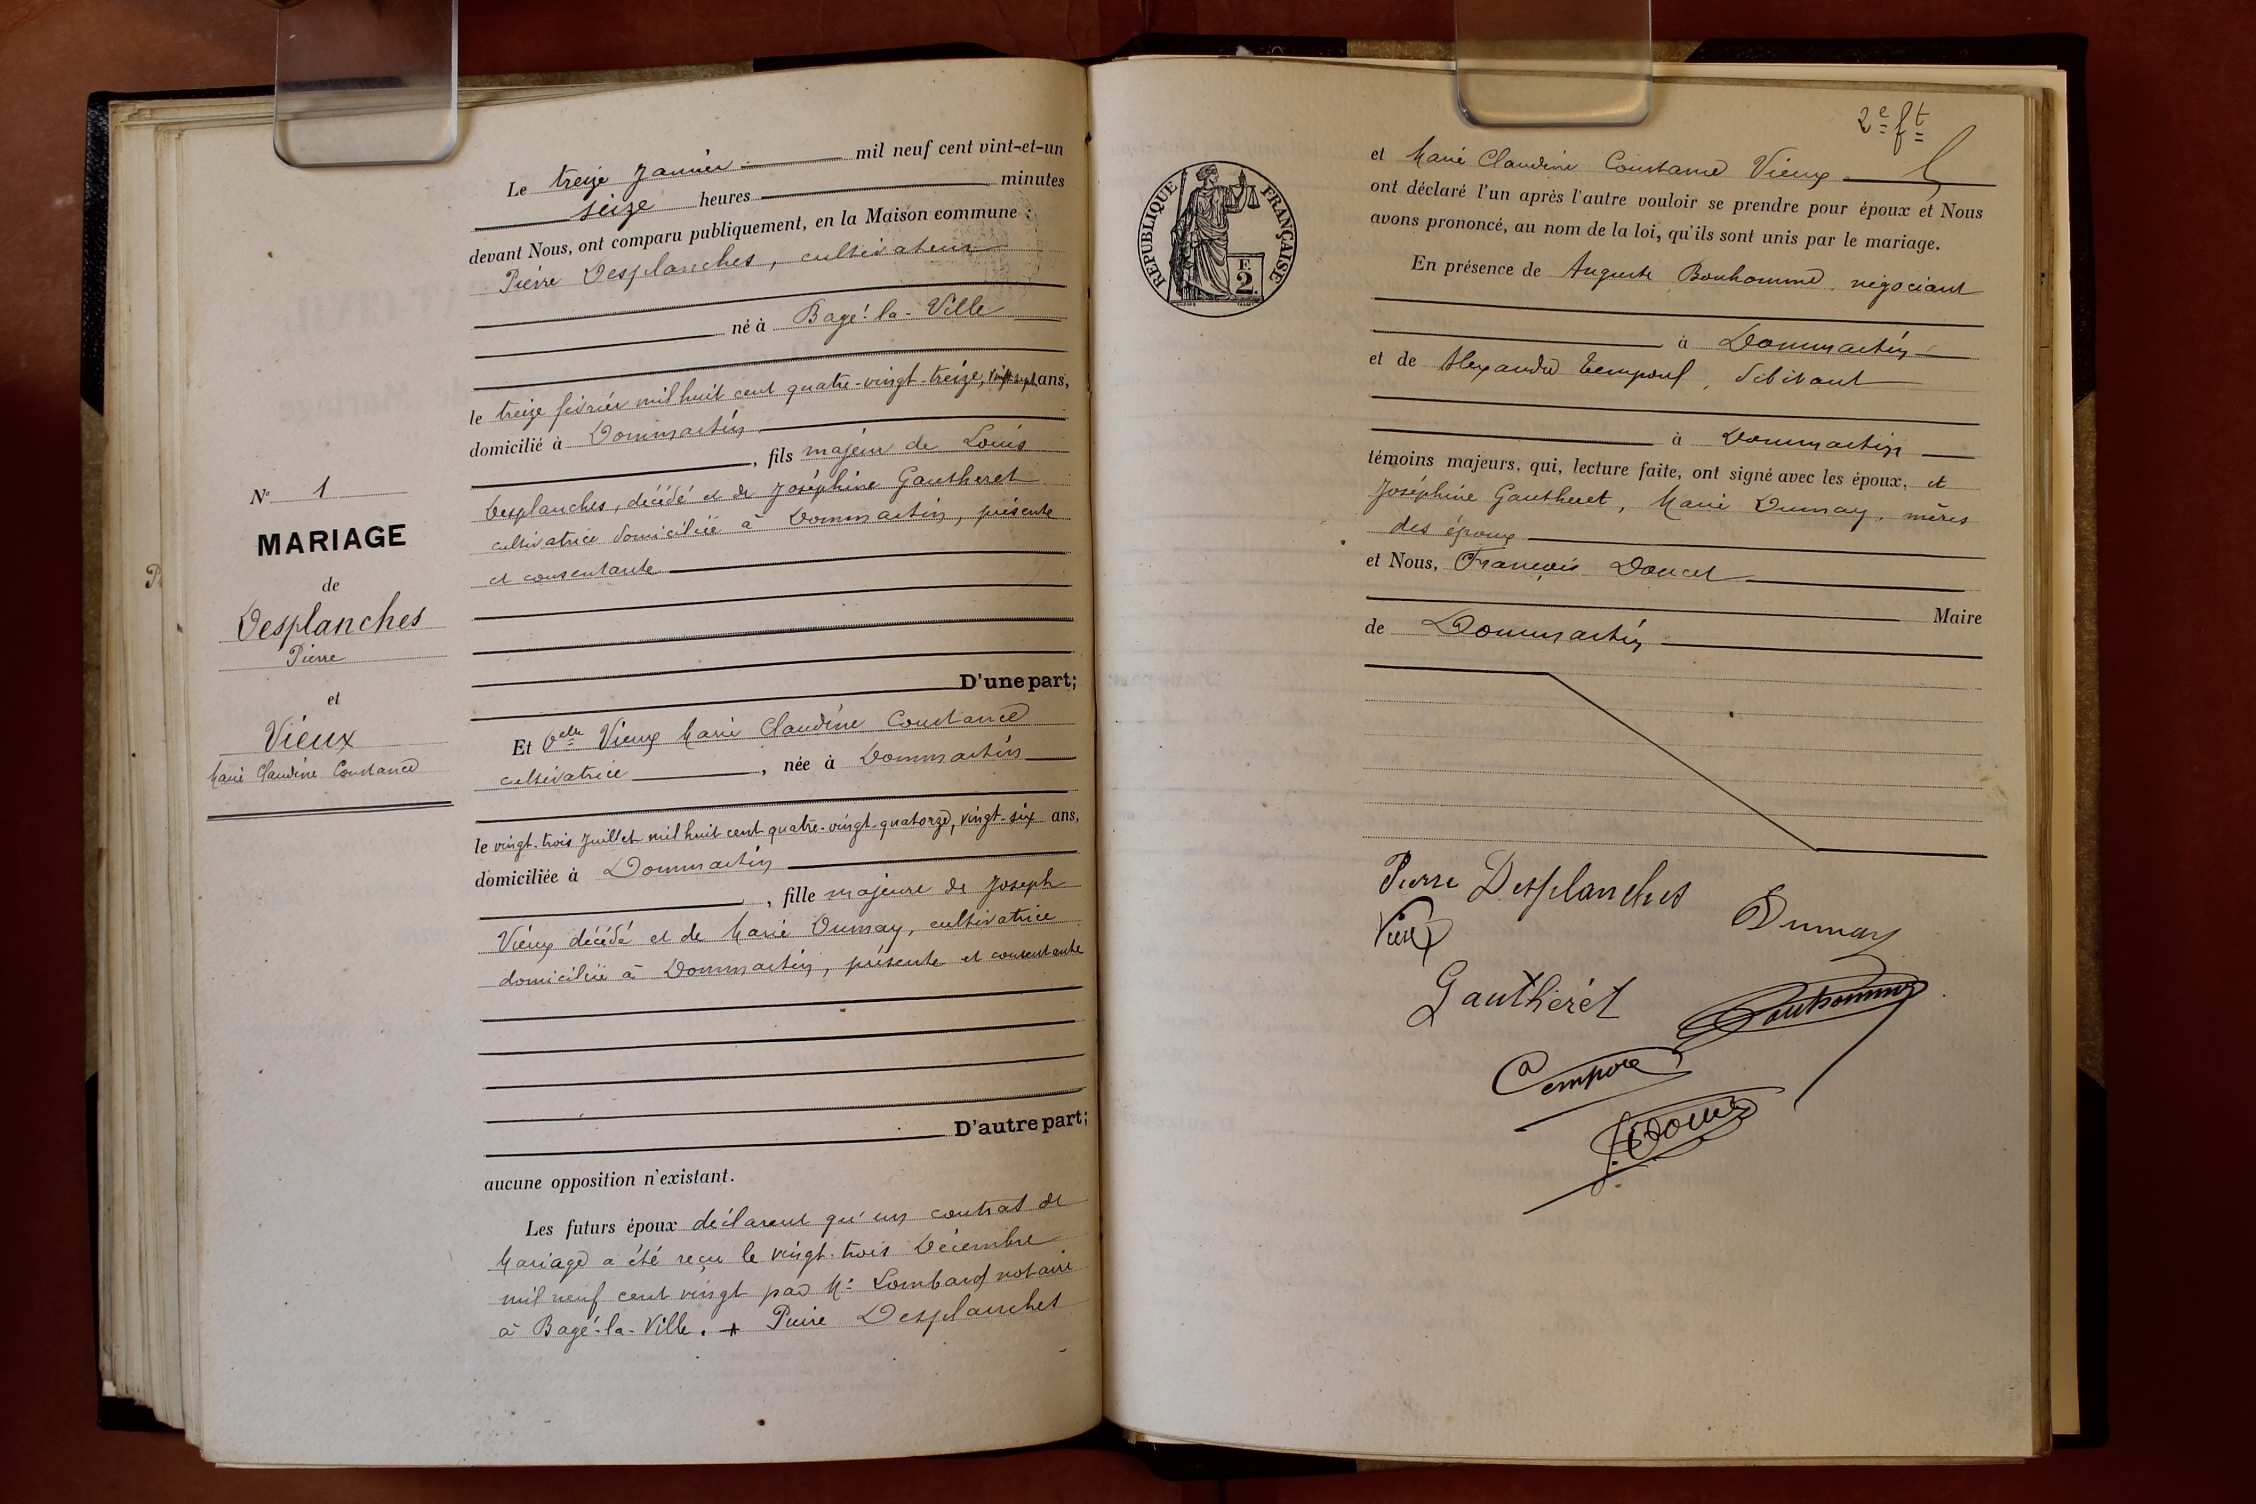 Le treize Janvier mil neuf cent vint-et-un
seize heures minutes
devant Nous, ont comparu publiquement, en la Maison commune :
Pierre Desplanches, cultivateur
né à Bagé-la-Ville
le treize février mil huit cent quatre-vingt-treize, vingt-sept ans,
domicilié à Dommartin
, fils majeur de Louis
Desplanches, décédé et de Joséphine Gautheret
cultivatrice domiciliée à Dommartin, présente
et consentante
D'une part;
N° 1
MARIAGE
de
Desplanches
Pierre
et
Vieux
Marie Claudine Constance
Et Delle Vieux Marie Claudine Constance
cultivatrice , née à Dommartin
le vingt-trois Juillet mil huit cent quatre-vingt-quatorze, vingt-six ans,
domiciliée à Dommartin
, fille majeure de Joseph
Vieux décédé et de Marie Dumay, cultivatrice
domiciliée à Dommartin, présente et consentante
D'autre part;
aucune opposition n'existant.
Les futurs époux déclarent qu'un contrat de
Mariage a été reçu le vingt-trois Décembre
mil neuf cent vingt par Me Lombard notaire
à Bagé-la-Ville. + Pierre Desplanches
2e ft
RÉPUBLIQUE FRANÇAISE
F.
2.
et Marie Claudine Constance Vieux
ont déclaré l'un après l'autre vouloir se prendre pour époux et Nous
avons prononcé, au nom de la loi, qu'ils sont unis par le mariage.
En présence de Auguste Bonhomme négociant
à Dommartin
et de Alexandre , débitant
à Dommartin
témoins majeurs, qui, lecture faite, ont signé avec les époux, et
Joséphine Gautheret, Marie Dumay, mères
des époux
et Nous, François Doucet
Maire
de Dommartin
Pierre Desplanches
Dumay
Vieux
Gautheret
Bonhomme